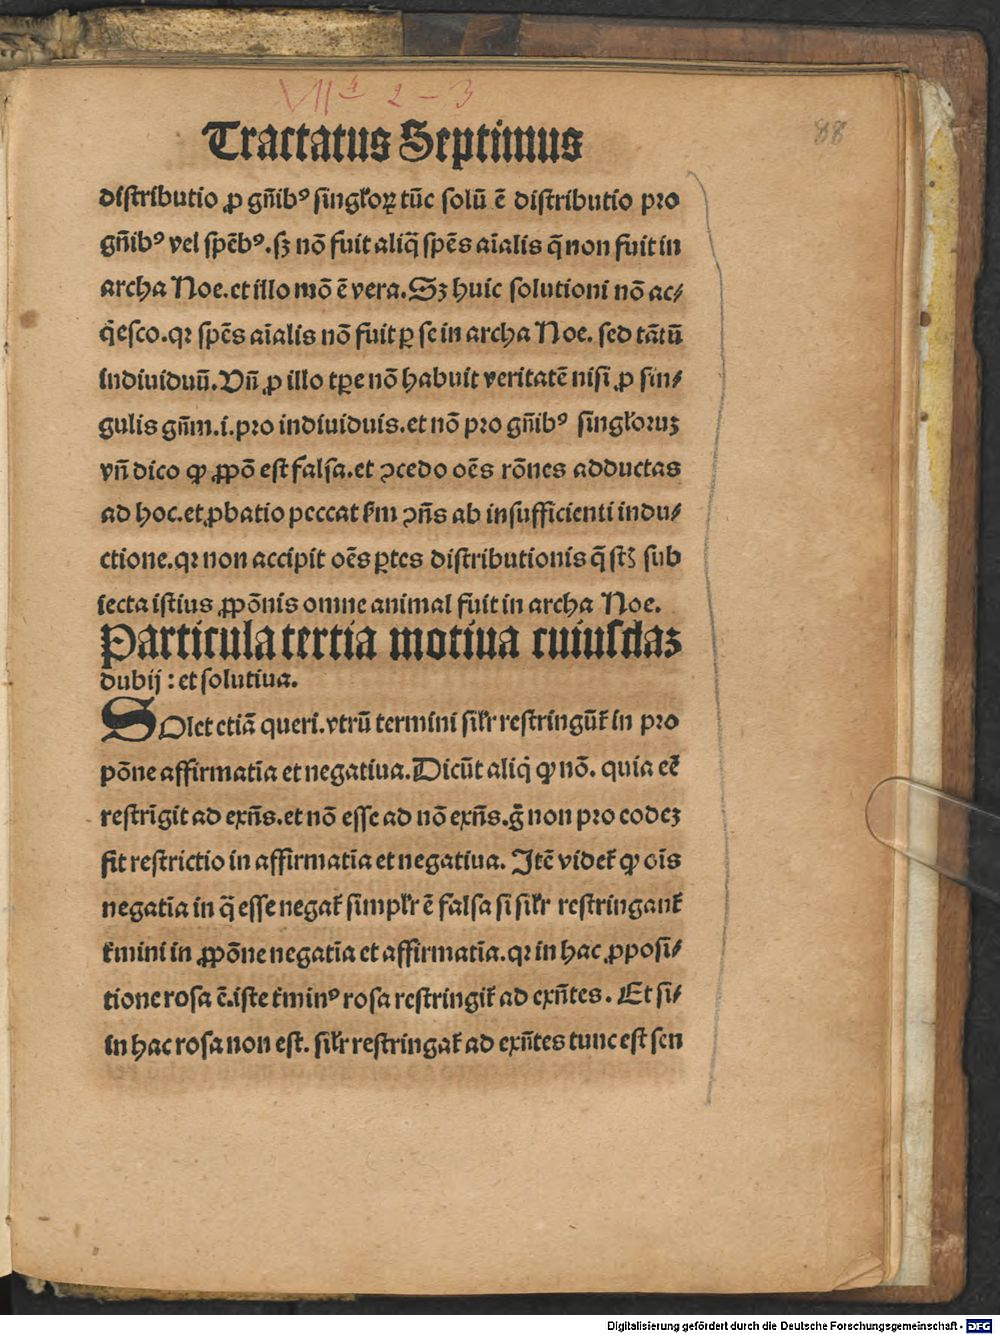 VII 4 2 – 3
88
Tractatus Septimus
distributio ꝓ gñibꝰ singlꝛoꝝ tūc solū ē distributio pro
gñibꝰ vel spēbꝰ.sꝫ nō fuit aliq̄ spēs aīalis q̄ non fuit in
archa Noe.et illo mō ē vera.Sꝫ huic solutioni nō ac⸗
q̇esco.qꝛ spēs aīalis nō fuit ꝑ se in archa Noe. sed tātū
indiuiduū.Vñ ꝓ illo tꝑe nō habuit veritatē nisi ꝓ sin⸗
gulis gñm.i.pro indiuiduis.et nō pro gñibꝰ singloruꝫ
vñ dico ꝙ ꝓpō est falsa.et ↄcedo oēs rōnes adductas
ad hoc.et ꝓbatio peccat ẜm ↄñs ab insufficienti indu⸗
ctione.qꝛ non accipit oēs ꝑtes distributionis q̄ st̄ sub
iecta istius ꝓpōnis omne animal fuit in archa Noe.
Particula tertia motiua cuiusdaꝫ
dubij : et solutiua.
SOlet etiā queri.vtrū termini silr restringūt̄ in pro
pōne affirmatīa et negatiua.Dicūt aliq̇ ꝙ nō. quia eē
restrīgit ad exñs.et nō esse ad nō exñs.g̊ non pro eodeꝫ
fit restrictio in affirmatīa et negatiua. Itē videt̄ ꝙ oīs
negatīa in q̄ esse negat̄ simplr ē falsa si silr restringant̄
t̄mini in ꝓpōne negatīa et affirmatīa.qꝛ in hac ꝓposi⸗
tione rosa ē.iste t̄minꝰ rosa restringit̄ ad exñtes. Et si⸗
in hac rosa non est. silr restringat̄ ad exñtes tunc est sen
Digitalisierung gefördert durch die Deutsche Forschungsgemeinschaft - DFG